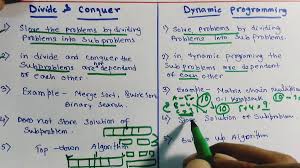 Divide & Conquer
1) Solve the problems by dividing
Problems into Sub problems
2) In divide and Conquer the
Sub Problems are dependent of
each other
3) Example - Merge Sort, Quick Sort
Binary Search.
4) Does not store Solution of
Subproblem.
5) Top-down Algorithm
Dynamic programming
1) Solve the problems by dividing
Problems into Subproblems
Sub problems are dependent
of each other
3) Example - Matrix chain
4) Solution of Subproblem
Bottom up Algorithm